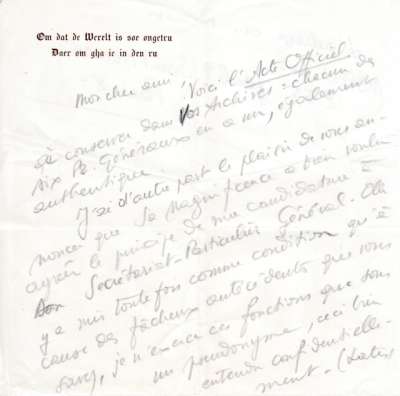 Om dat de Werelt is soe ongetru
Daer om gha ic in den ru
Mon cher ami, Voici l'Acte Officiel
à conserver dans Vos Archives : chacun des
six Pr. Généraux en a un, également
authentique.
J'ai d'autre part le plaisir de vous an-
noncer que Sa Magnificence a bien voulu
agréer le principe de ma candidature à
Son Secrétariat-Particulier Général. Elle
y a mis toutefois comme condition qu'à
cause des fâcheux antécédents que vous
savez, je n'exerce ces fonctions que sous
un pseudonyme, ceci bien
entendu confidentielle-
ment - (